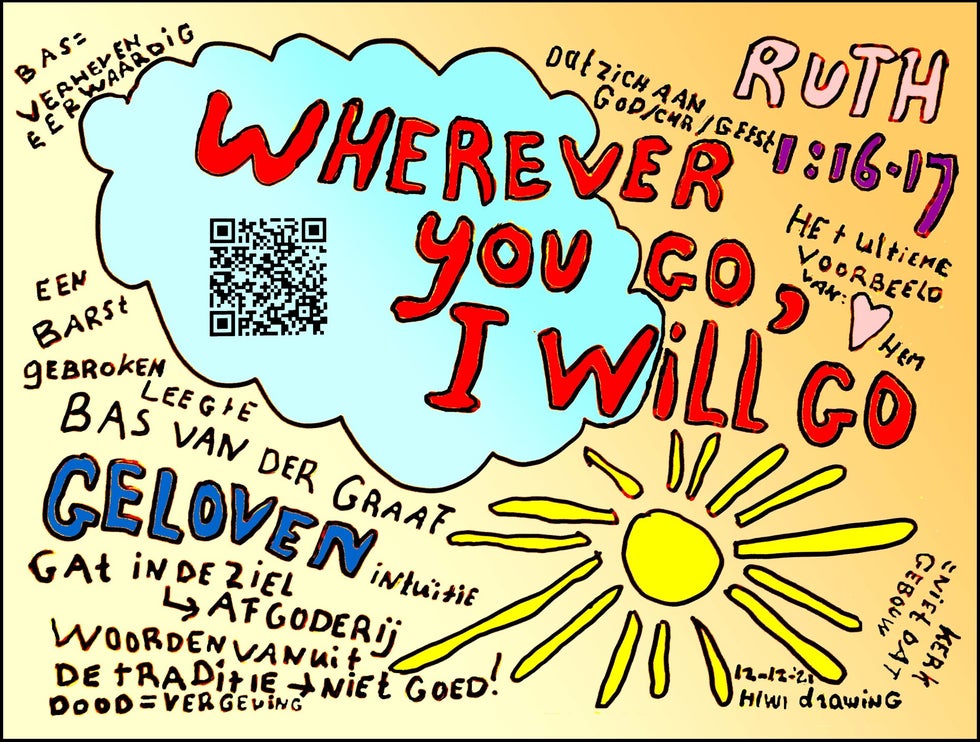 BAS=
VERHEVEN
EERWAARDIG
Dat ZICH AAN
GOD/CHR/GEEST
RUTH
1:16-17
WHEREVER
YOU GO,
I WILL GO
HEt ULtiEME
VOORBEELD
VAN:
HEM
EEN
BARSt
gEBROKEN
LEEGtE
BAS VAN DER GRAAF
GELOVEN
intuïtiE
GAt iN DE ZiEL
↳ AFGODERij
WOORDEN VANUit
DE tRADitiE → NiEt GOED!
DOOD = VERGEVING
KERK
= NiEt DAT
GEBOUW
12-12-'21
HIWI drawiNG